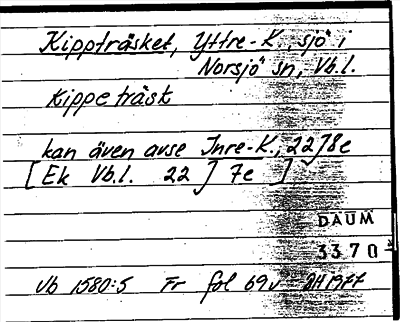 Kippträsket, Yttre-K., sjö i
Norsjö sn, Vb.l.
Kippeträsk
kan även avse Inre-K., 22J8e
[Ek Vb.l. 22 J 7e ]
DAUM
3370
Vb 1580:5 Fr fol 69v